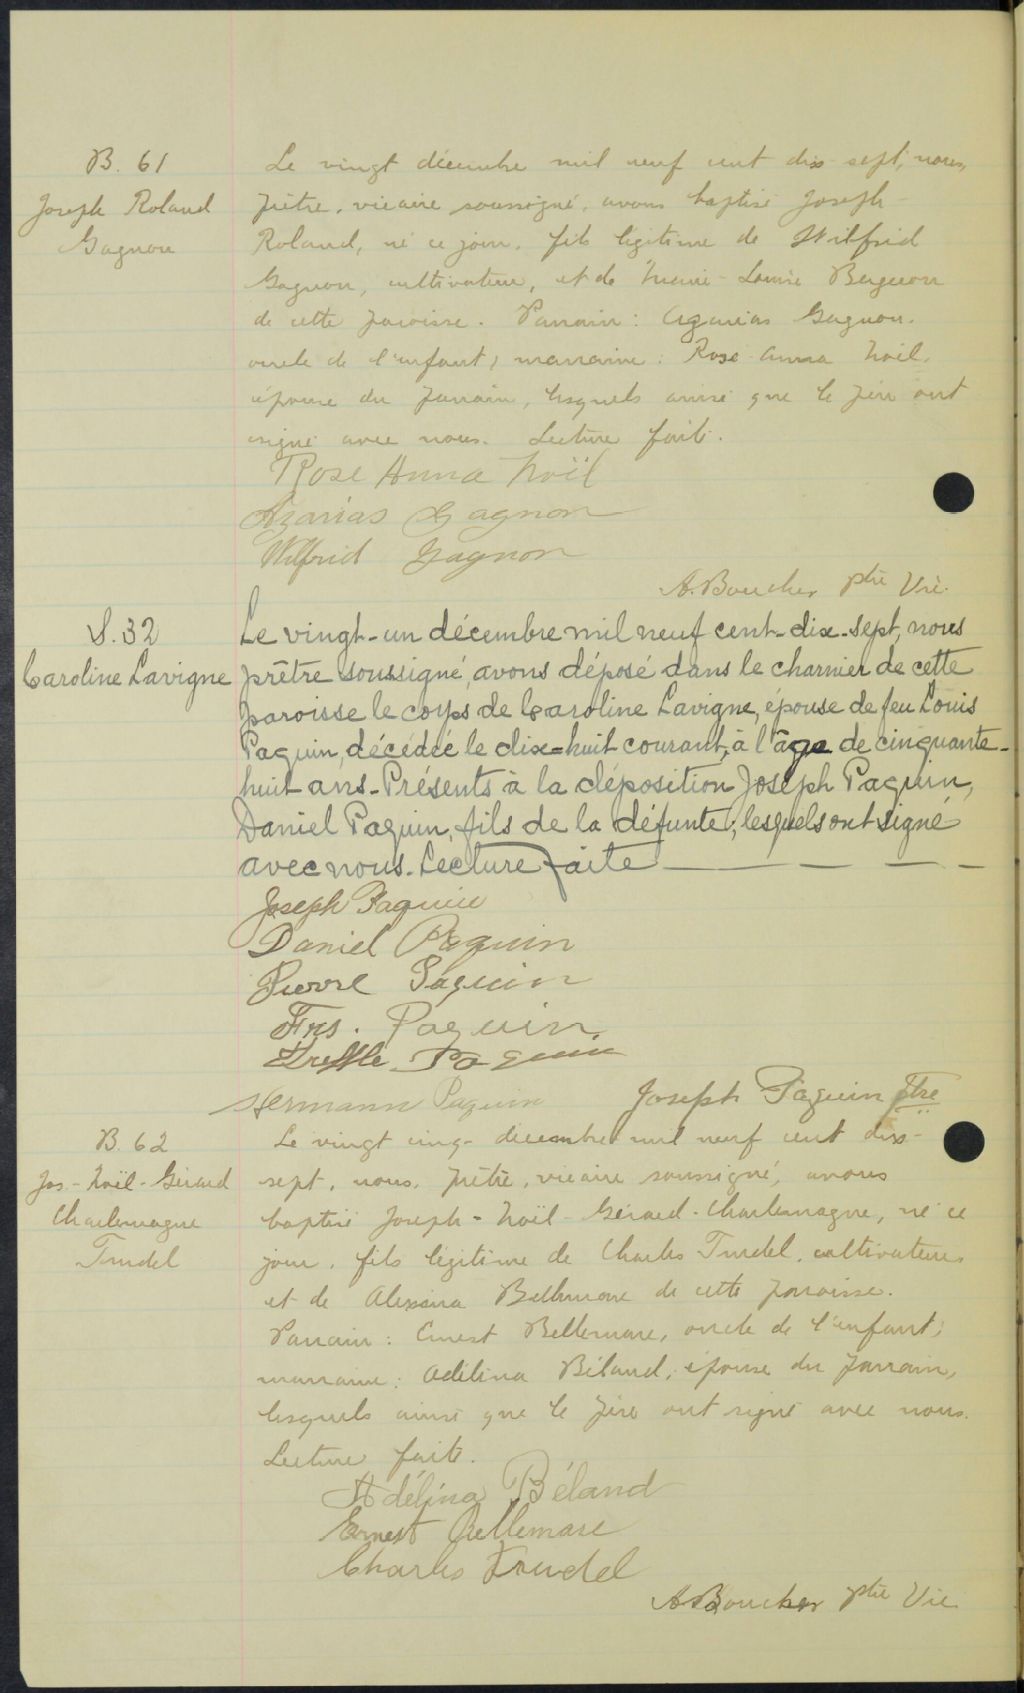 B. 61
Joseph Roland
Gagnon
Le vingt décembre mil neuf cent dix-sept, nous,
prêtre, vicaire soussigné, avons baptisé Joseph-
Roland, né ce jour, fils légitime de Wilfrid
Gagnon, cultivateur, et de Marie-Louise Bergeron
de cette paroisse. Parrain: Azarias Gagnon,
oncle de l'enfant; marraine: Rose-Anna Noël,
épouse du parrain, lesquels ainsi que le père ont
signé avec nous. Lecture faite.
Rose Anna Noël
Azarias Gagnon
Wilfrid Gagnon
A. Boucher ptre Vic.
S. 32
Caroline Lavigne
Le vingt-un décembre mil neuf cent-dix-sept, nous
prêtre soussigné, avons déposé dans le charnier de cette
paroisse le corps de Caroline Lavigne, épouse de feu Louis
Paquin, décédée le dix-huit courant, à l'âge de cinquante-
huit ans. Présents à la déposition Joseph Paquin,
Daniel Paquin, fils de la défunte; lesquels ont signé
avec nous. Lecture faite
Joseph Paquin
Daniel Paquin
Pierre Paquin
Frs. Paquin
Treffle Paquin
Hermann Paquin
Joseph Paquin Ptre
B. 62
Jos.-Noël-Gérard
Charlemagne
Trudel
Le vingt cinq décembre mil neuf cent dix-
sept, nous, prêtre, vicaire soussigné, avons
baptisé Joseph-Noël-Gérard-Charlemagne, né ce
jour, fils légitime de Charles Trudel, cultivateur
et de Alexina Bellemare de cette paroisse.
Parrain: Ernest Bellemare, oncle de l'enfant;
marraine: Adélina Béland, épouse du parrain,
lesquels ainsi que le père ont signé avec nous.
Lecture faite.
Adélina Béland
Ernest Bellemare
Charles Trudel
A. Boucher ptre Vic